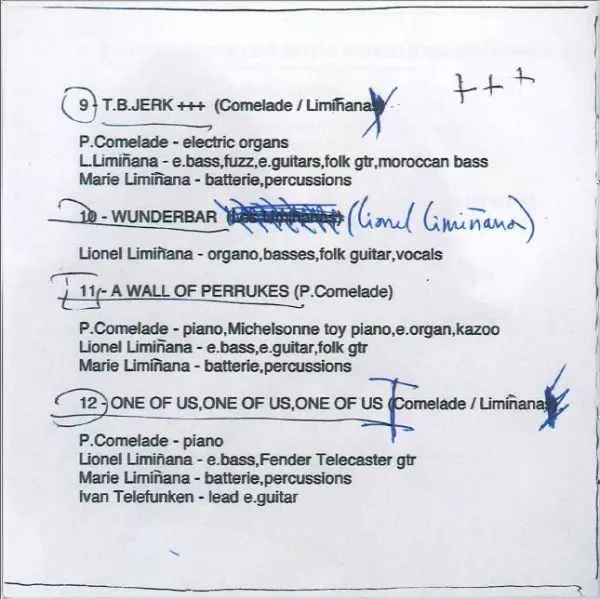 +++
9 - T.B.JERK +++ (Comelade / Limiñanas)
P.Comelade - electric organs
L.Limiñana - e.bass,fuzz,e.guitars,folk gtr,moroccan bass
Marie Limiñana - batterie,percussions
10 - WUNDERBAR (Les Limiñanas) (Lionel Limiñana)
Lionel Limiñana - organo,basses,folk guitar,vocals
11 - A WALL OF PERRUKES (P.Comelade)
P.Comelade - piano,Michelsonne toy piano,e.organ,kazoo
Lionel Limiñana - e.bass,e.guitar,folk gtr
Marie Limiñana - batterie,percussions
12 - ONE OF US,ONE OF US,ONE OF US (Comelade / Limiñanas)
P.Comelade - piano
Lionel Limiñana - e.bass,Fender Telecaster gtr
Marie Limiñana - batterie,percussions
Ivan Telefunken - lead e.guitar